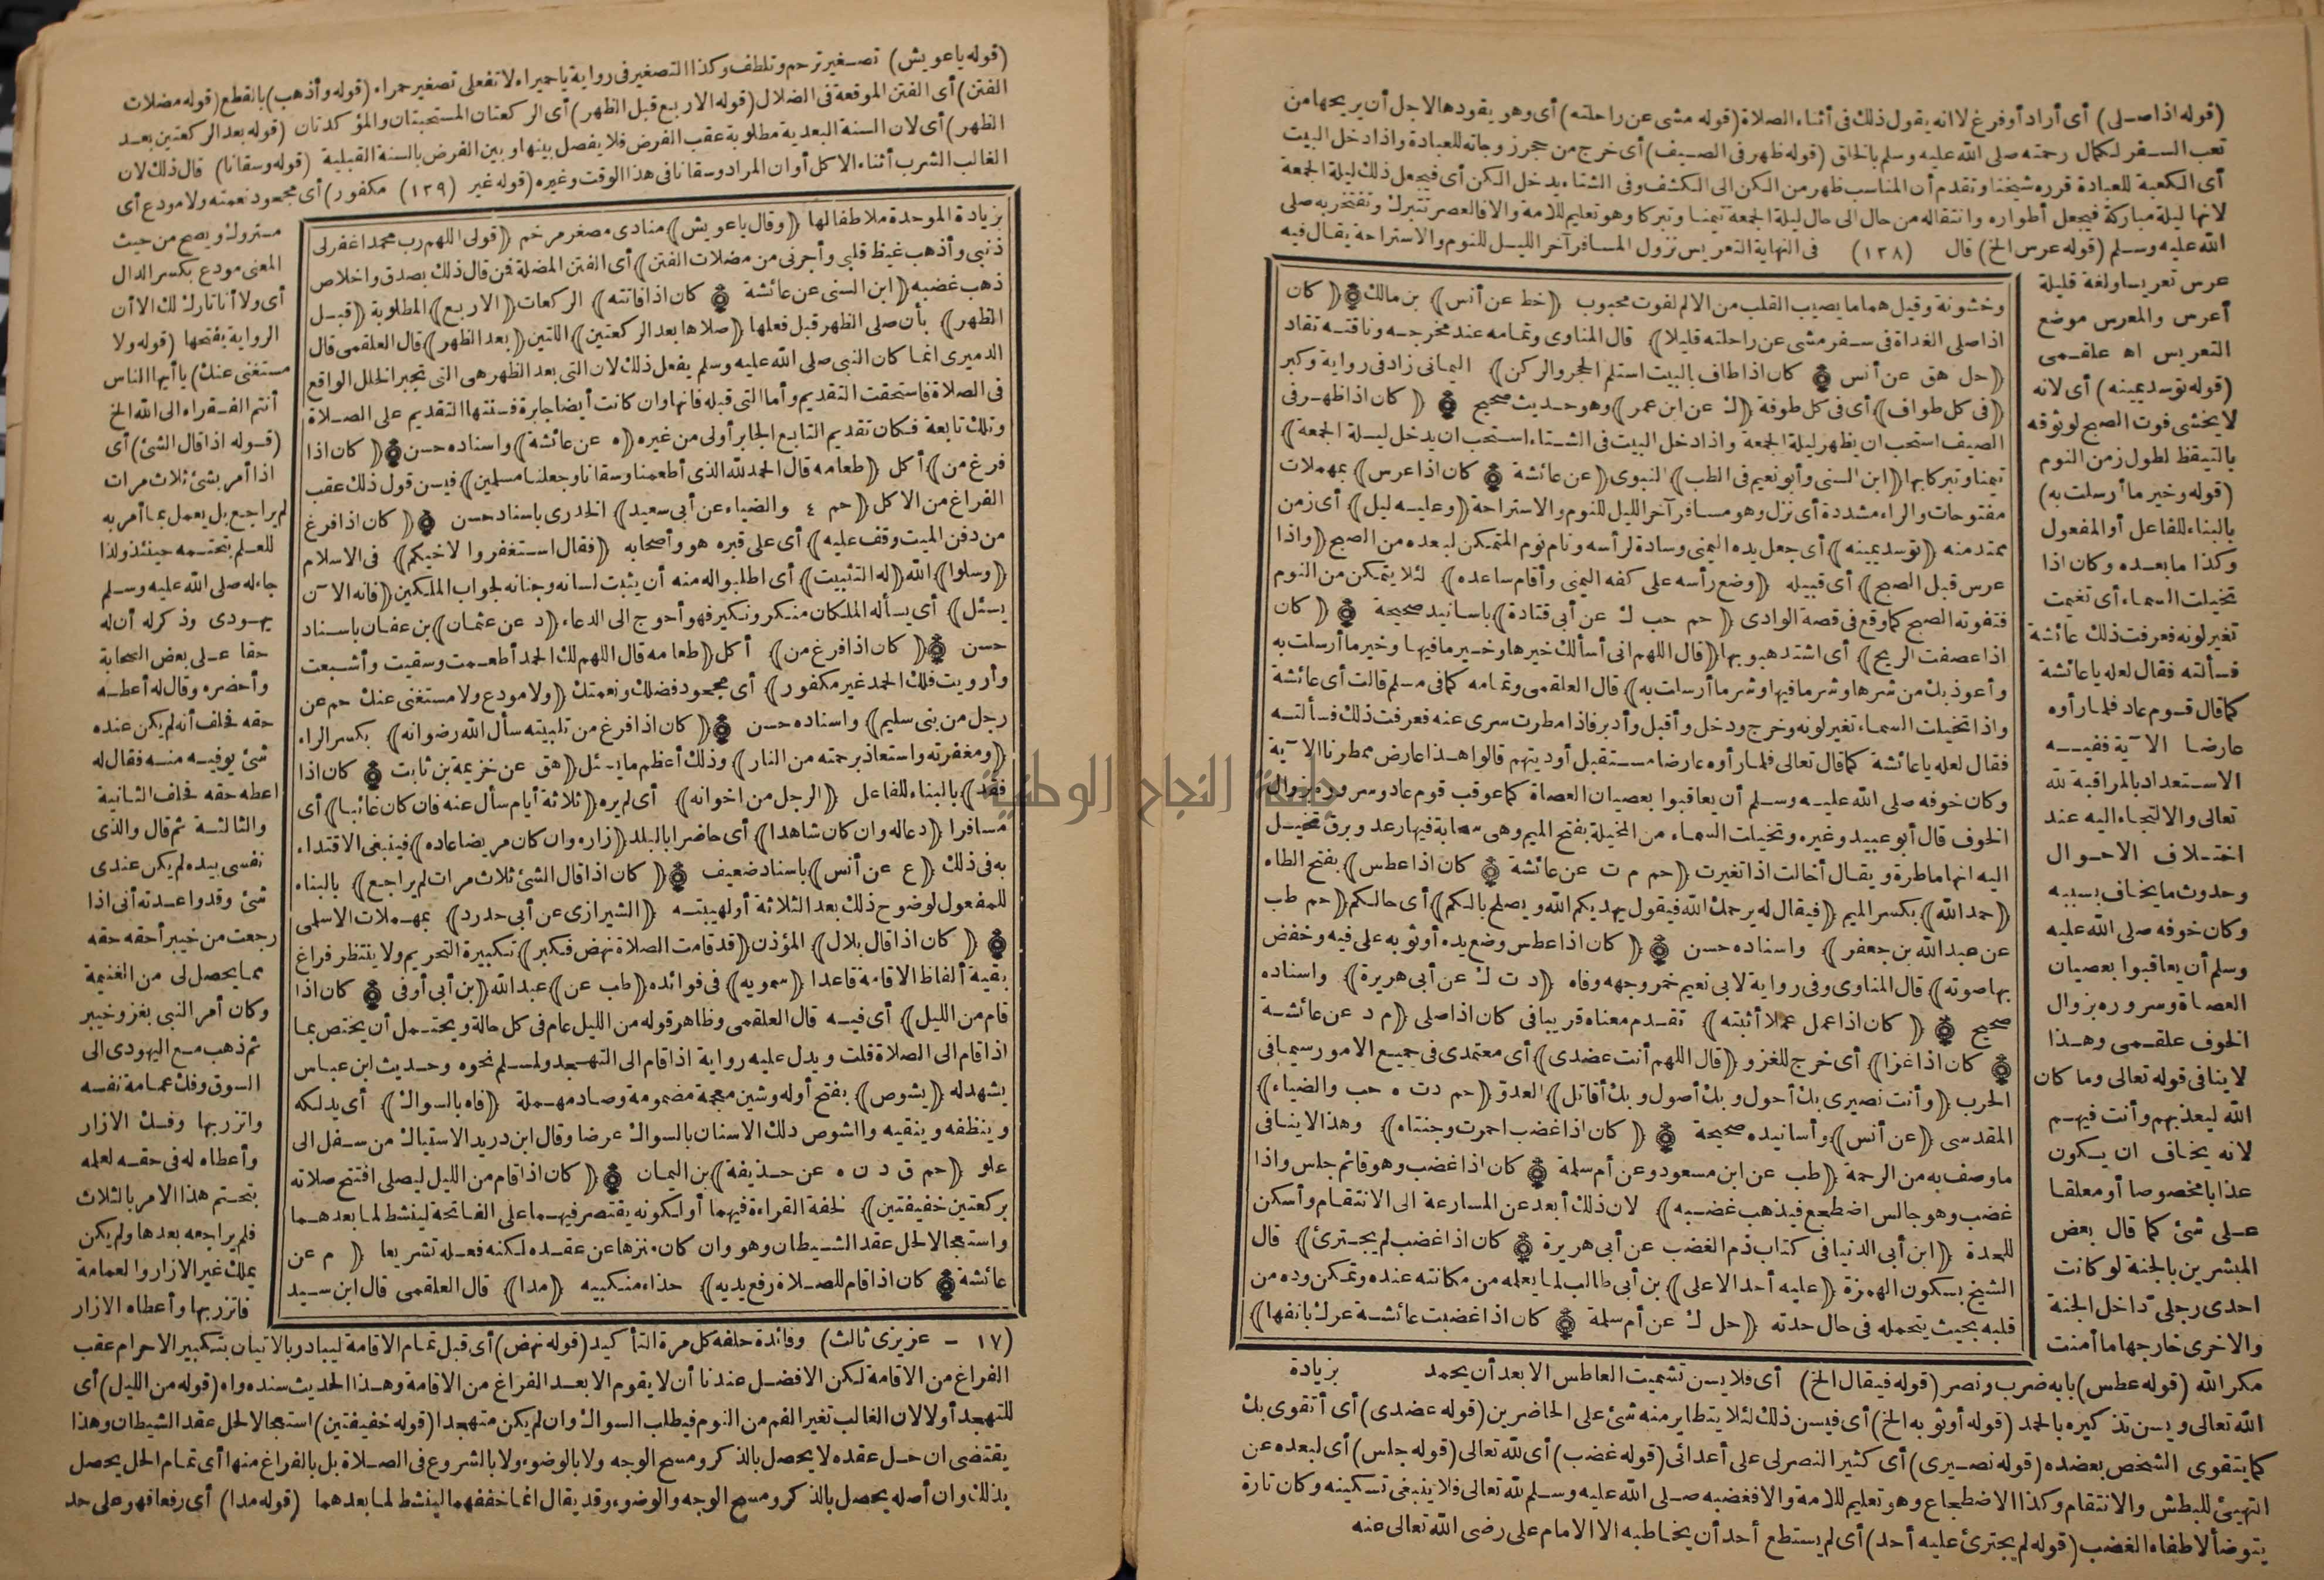 (قوله اذا صلى) أى أراد أو فرغ لا انه يقول ذلك فى أثناء الصلاة (قوله مشى عن راحلته) أى وهو يقودها لاجل أن يريحها من
تعب السفر لكمال رحمته صلى الله عليه وسلم بالخلق (قوله ظهر فى الصيف) أى خرج من حجر زوجاته للعبادة واذا دخل البيت
أى الكعبة للعبادة قرره شيخنا وتقدم أن المناسب ظهر من الكن الى الكشف وفى الشتاء يدخل الكن أى فيجعل ذلك ليلة الجمعة
لانها ليلة مباركة فيجعل أطواره وانتقاله من حال الى حال ليلة الجمعة تيمنا وتبركا وهو تعليم للامة والا فالعصر تتبرك وتفتخر به صلى
الله عليه وسلم (قوله عرس الخ) قال (١٣٨) فى النهاية التعريس نزول المسافر آخر الليل للنوم والاستراحة يقال فيه
عرس تعريسا ولغة قليلة
أعرس والمعرس موضع
التعريس اه علقمى
(قوله توسد يمينه) أى لانه
لا يخشى فوت الصبح لوثوقه
بالتيقظ لطول زمن النوم
(قوله وخير ما أرسلت به)
بالبناء للفاعل أو المفعول
وكذا ما بعده وكان اذا
تخيلت السماء أى تغيمت
تغير لونه فعرفت ذلك عائشة
فسألته فقال لعله يا عائشة
كما قال قوم عاد فلما رأوه
عارضا الآية ففيه
الاستعداد بالمراقبة لله
تعالى والالتجاء اليه عند
اختلاف الاحوال
وحدوث ما يخاف بسببه
وكان خوفه صلى الله عليه
وسلم أن يعاقبوا بعصيان
العصاة وسروره بزوال
الخوف علقمى وهذا
لا ينافى قوله تعالى وما كان
الله ليعذبهم وأنت فيهم
لانه يخاف ان يكون
عذابا مخصوصا أو معلقا
على شئ كما قال بعض
المبشرين بالجنة لو كانت
احدى رجلى داخل الجنة
والاخرى خارجها ما أمنت
وخشونة وقيل هما ما يصيب القلب من الالم لفوت محبوب (خط عن أنس) بن مالك (كان
اذا صلى الغداة فى سفر مشى عن راحلته قليلا) قال المناوى وتمامه عند مخرجه وناقته تقاد
(حل هق عن أنس كان اذا طاف بالبيت استلم الحجر والركن) اليمانى زاد فى رواية وكبر
(فى كل طواف) أى فى كل طوفة (ك عن ابن عمر) وهو حديث صحيح (كان اذا ظهر فى
الصيف استحب ان يظهر ليلة الجمعة واذا دخل البيت فى الشتاء استحب ان يدخل ليلة الجمعة)
تيمنا وتبركا بها (ابن السنى وأبو نعيم فى الطب) النبوى (عن عائشة كان اذا عرس) بمهملات
مفتوحات والراء مشددة أى نزل وهو مسافر آخر الليل للنوم والاستراحة (وعليه ليل) أى زمن
ممتد منه (توسد يمينه) أى جعل يده اليمنى وسادة لرأسه ونام نوم المتمكن لبعده من الصبح (واذا
عرس قبل الصبح) أى قبيله (وضع رأسه على كفه اليمنى وأقام ساعده) لئلا يتمكن من النوم
فتفوته الصبح كما وقع فى قصة الوادى (حم حب ك عن أبى قتادة) باسانيد صحيحة (كان
اذا عصفت الريح) أى اشتد هبوبها (قال اللهم انى أسألك خيرها وخير ما فيها وخير ما أرسلت به
وأعوذ بك من شرها وشر ما فيها وشر ما أرسلت به) قال العلقمى وتمامه كما فى مسلم قالت أى عائشة
واذا تخيلت السماء تغير لونه وخرج ودخل وأقبل وأدبر فاذا مطرت سرى عنه فعرفت ذلك فسألته
فقال لعله يا عائشة كما قال تعالى فلما رأوه عارضا مستقبل أوديتهم قالوا هذا عارض ممطرنا الآية
وكان خوفه صلى الله عليه وسلم أن يعاقبوا بعصيان العصاة كما عوقب قوم عاد وسروره بزوال
الخوف قال أبو عبيد وغيره وتخيلت السماء من المخيلة بفتح الميم وهى سحابة فيها رعد وبرق تخيل
اليه انها ماطرة ويقال أخالت اذا تغيرت (حم م ت عن عائشة كان اذا عطس) بفتح الطاء
(حمد الله) بكسر الميم (فيقال له يرحمك الله فيقول يهديكم الله ويصلح بالكم) أى حالكم (حم طب
عن عبد الله بن جعفر) واسناده حسن (كان اذا عطس وضع يده أو ثوبه على فيه وخفض
بها صوته) قال المناوى وفى رواية لابى نعيم خمر وجهه وفاه (د ت ك عن أبى هريرة) واسناده
صحيح (كان اذا عمل عملا أثبته) تقدم معناه قريبا فى كان اذا صلى (م د عن عائشة
كان اذا غزا) أى خرج للغزو (قال اللهم أنت عضدى) أى معتمدى فى جميع الامور سيما فى
الحرب (وأنت نصيرى بك أحول وبك أصول وبك أقاتل) العدو (حم د ت ه حب والضياء)
المقدسى (عن أنس) وأسانيده صحيحة (كان اذا غضب احمرت وجنتاه) وهذا لا ينافى
ما وصف به من الرحمة (طب عن ابن مسعود وعن أم سلمة كان اذا غضب وهو قائم جلس واذا
غضب وهو جالس اضطجع فيذهب غضبه) لان ذلك أبعد عن المسارعة الى الانتقام وأسكن
للحدة (ابن أبى الدنيا فى كتاب ذم الغضب عن أبى هريرة كان اذا غضب لم يجترئ) قال
الشيخ بسكون الهمزة (عليه أحد الا على) بن أبى طالب لما يعلمه من مكانته عنده وتمكن وده من
قلبه بحيث يتحمله فى حال حدته (حل ك عن أم سلمة كان اذا غضبت عائشة عرك بانفها)
بزيادة
مكر الله (قوله عطس) بابه ضرب ونصر (قوله فيقال الخ) أى فلا يسن تشميت العاطس الا بعد أن يحمد
الله تعالى ويسن تذكيره بالحمد (قوله أو ثوبه الخ) أى فيسن ذلك لئلا يتطاير منه شئ على الحاضرين (قوله عضدى) أى أتقوى بك
كما يتقوى الشخص بعضده (قوله نصيرى) أى كثير النصر لى على أعدائى (قوله غضب) أى لله تعالى (قوله جلس) أى لبعده عن
التهيئ للبطش والانتقام وكذا الاضطجاع وهو تعليم للامة والا فغضبه صلى الله عليه وسلم لله تعالى فلا ينبغى تسكينه وكان تارة
يتوضأ لاطفاء الغضب (قوله لم يجترئ عليه أحد) أى لم يستطع أحد أن يخاطبه الا الامام على رضى الله تعالى عنه
(قوله يا عويش) تصغير ترحم وتلطف وكذا التصغير فى رواية يا حميراء لا تفعلى تصغير حمراء (قوله وأذهب) بالقطع (قوله مضلات
الفتن) أى الفتن الموقعة فى الضلال (قوله الاربع قبل الظهر) أى الركعتان المستحبتان والمؤكدتان (قوله بعد الركعتين بعد
الظهر) أى لان السنة البعدية مطلوبة عقب الفرض فلا يفصل بينها وبين الفرض بالسنة القبلية (قوله وسقانا) قال ذلك لان
الغالب الشرب أثناء الاكل أو ان المراد وسقانا فى هذا الوقت وغيره (قوله غير (١٢٩) مكفور) أى مجحود نعمته ولا مودع أى
بزيادة الموحدة ملاطفا لها (وقال يا عويش) منادى مصغر مرخم (قولى اللهم رب محمد اغفر لى
ذنبى وأذهب غيظ قلبى وأجرنى من مضلات الفتن) أى الفتن المضلة فمن قال ذلك بصدق واخلاص
ذهب غضبه (ابن السنى عن عائشة كان اذا فاتته) الركعات (الاربع) المطلوبة (قبل
الظهر) بأن صلى الظهر قبل فعلها (صلاها بعد الركعتين) اللتين (بعد الظهر) قال العلقمى قال
الدميرى انما كان النبى صلى الله عليه وسلم يفعل ذلك لان التى بعد الظهر هى التى تجبر الخلل الواقع
فى الصلاة فاستحقت التقديم وأما التى قبله فانها وان كانت أيضا جابرة فسنتها التقديم على الصلاة
وتلك تابعة فكان تقديم التابع الجابر أولى من غيره (ه عن عائشة) واسناده حسن (كان اذا
فرغ من) أكل (طعامه قال الحمد لله الذى أطعمنا وسقانا وجعلنا مسلمين) فيسن قول ذلك عقب
الفراغ من الاكل (حم ٤ والضياء عن أبى سعيد) الخدرى باسناد حسن (كان اذا فرغ
من دفن الميت وقف عليه) أى على قبره هو وأصحابه (فقال استغفروا لاخيكم) فى الاسلام
(وسلوا) الله (له التثبيت) أى اطلبوا له منه أن يثبت لسانه وجنانه لجواب الملكين (فانه الآن
يسئل) أى يسأله الملكان منكر ونكير فهو أحوج الى الدعاء (د عن عثمان) بن عفان باسناد
حسن (كان اذا فرغ من) أكل (طعامه قال اللهم لك الحمد أطعمت وسقيت وأشبعت
وأرويت فلك الحمد غير مكفور) أى مجحود فضلك ونعمتك (ولا مودع ولا مستغنى عنك حم عن
رجل من بنى سليم) واسناده حسن (كان اذا فرغ من تلبيته سأل الله رضوانه) بكسر الراء
(ومغفرته واستعاذ برحمته من النار) وذلك أعظم ما يسئل (هق عن خزيمة بن ثابت كان اذا
فقد) بالبناء للفاعل (الرجل من اخوانه) أى لم يره (ثلاثة أيام سأل عنه فان كان غائبا) أى
مسافرا (دعا له وان كان شاهدا) أى حاضرا بالبلد (زاره وان كان مريضا عاده) فينبغى الاقتداء
به فى ذلك (ع عن أنس) باسناد ضعيف (كان اذا قال الشئ ثلاث مرات لم يراجع) بالبناء
للمفعول لوضوح ذلك بعد الثلاثة أو لهيبته (الشيرازى عن أبى حدرد) بمهملات الاسلمى
(كان اذا قال بلال) المؤذن (قد قامت الصلاة نهض فكبر) تكبيرة التحريم ولا ينتظر فراغ
بقية ألفاظ الاقامة قاعدا (سمويه) فى فوائده (طب عن) عبد الله (بن أبى أوفى كان اذا
قام من الليل) أى فيه قال العلقمى وظاهر قوله من الليل عام فى كل حالة ويحتمل أن يختص بما
اذا قام الى الصلاة قلت ويدل عليه رواية اذا قام الى التهجد ولمسلم نحوه وحديث ابن عباس
يشهد له (يشوص) بفتح أوله وشين معجمة مضمومة وصاد مهملة (فاه بالسواك) أى يدلكه
وينظفه وينقيه والشوص دلك الاسنان بالسواك عرضا وقال ابن دريد الاستياك من سفل الى
علو (حم ق د ن ه عن حذيفة) بن اليمان (كان اذا قام من الليل ليصلى افتتح صلاته
بركعتين خفيفتين) لخفة القراءة فيهما أو لكونه يقتصر فيهما على الفاتحة لينشط لما بعدهما
واستعجالا لحل عقد الشيطان وهو وان كان منزها عن عقده لكنه فعله تشريعا (م عن
عائشة كان اذا قام للصلاة رفع يديه) حذاء منكبيه (مدا) قال العلقمى قال ابن سيد
متروك ويصح من حيث
المعنى مودع بكسر الدال
أى ولا أنا تارك لك الا أن
الرواية بفتحها (قوله ولا
مستغنى عنك) يا أيها الناس
أنتم الفقراء الى الله الخ
(قوله اذا قال الشئ) أى
اذا أمر بشئ ثلاث مرات
لم يراجع بل يعمل بما أمر به
للعلم بتحتمه حينئذ ولذا
جاء له صلى الله عليه وسلم
يهودى وذكر له أن له
حقا على بعض الصحابة
وأحضره وقال له أعطه
حقه فحلف أنه لم يكن عنده
شئ يوفيه منه فقال له
اعطه حقه فحلف الثانية
والثالثة ثم قال والذى
نفسى بيده لم يكن عندى
شئ وقد واعدته أنى اذا
رجعت من خيبر أحقه حقه
مما يحصل لى من الغنيمة
وكان أمر النبى بغزو خيبر
ثم ذهب مع اليهودى الى
السوق وفك عمامة نفسه
واتزر بها وفك الازار
وأعطاه له فى حقه لعلمه
بتحتم هذا الامر بالثلاث
فلم يراجعه بعدها ولم يكن
يملك غير الازار والعمامة
فاتزر بها وأعطاه الازار
(١٧ - عزيزى ثالث) وفائدة حلفه كل مرة التأكيد (قوله نهض) أى قبل تمام الاقامة ليبادر بالاتيان بتكبير الاحرام عقب
الفراغ من الاقامة لكن الافضل عندنا أن لا يقوم الا بعد الفراغ من الاقامة وهذا الحديث سنده واه (قوله من الليل) أى
للتهجد أو لا لان الغالب تغير الفم من النوم فيطلب السواك وان لم يكن متهجدا (قوله خفيفتين) استعجالا لحل عقد الشيطان وهذا
يقتضى ان حل عقده لا يحصل بالذكر ومسح الوجه ولا بالوضوء ولا بالشروع فى الصلاة بل بالفراغ منها أى تمام الحل يحصل
بذلك وان أصله يحصل بالذكر ومسح الوجه والوضوء وقد يقال انما خففهما لينشط لما بعدهما (قوله مدا) أى رفعا فهو على حد
جامعة النجاح الوطنية